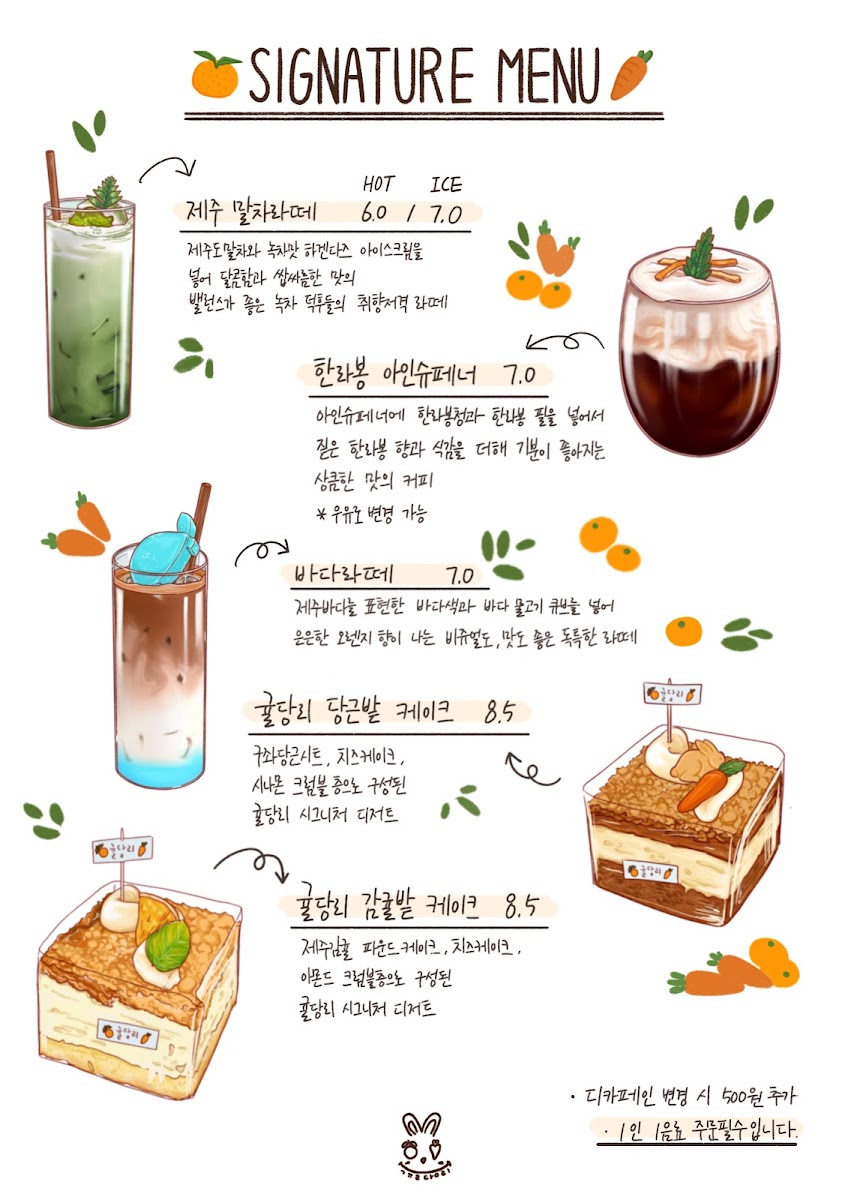 SIGNATURE MENU
HOT ICE
제주 말차라떼 6.0 / 7.0
제주도말차와 녹차맛 하겐다즈 아이스크림을
넣어 달콤함과 쌉싸름한 맛의
밸런스가 좋은 녹차 덕후들의 취향저격 라떼
한라봉 아인슈페너 7.0
아인슈페너에 한라봉청과 한라봉 필을 넣어서
짙은 한라봉 향과 식감을 더해 기분이 좋아지는
상큼한 맛의 커피
* 우유로 변경 가능
바다라떼 7.0
제주바다를 표현한 바다색과 바다 물고기 큐브를 넣어
은은한 오렌지 향이 나는 비쥬얼도, 맛도 좋은 독특한 라떼
귤당리
귤당리 당근밭 케이크 8.5
구좌당근시트, 치즈케이크,
시나몬 크럼블 층으로 구성된
귤당리 시그니처 디저트
귤당리
귤당리
귤당리 감귤밭 케이크 8.5
제주감귤 파운드케이크, 치즈케이크,
아몬드 크럼블층으로 구성된
귤당리 시그니처 디저트
귤당리
· 디카페인 변경 시 500원 추가
· 1인 1음료 주문필수입니다.